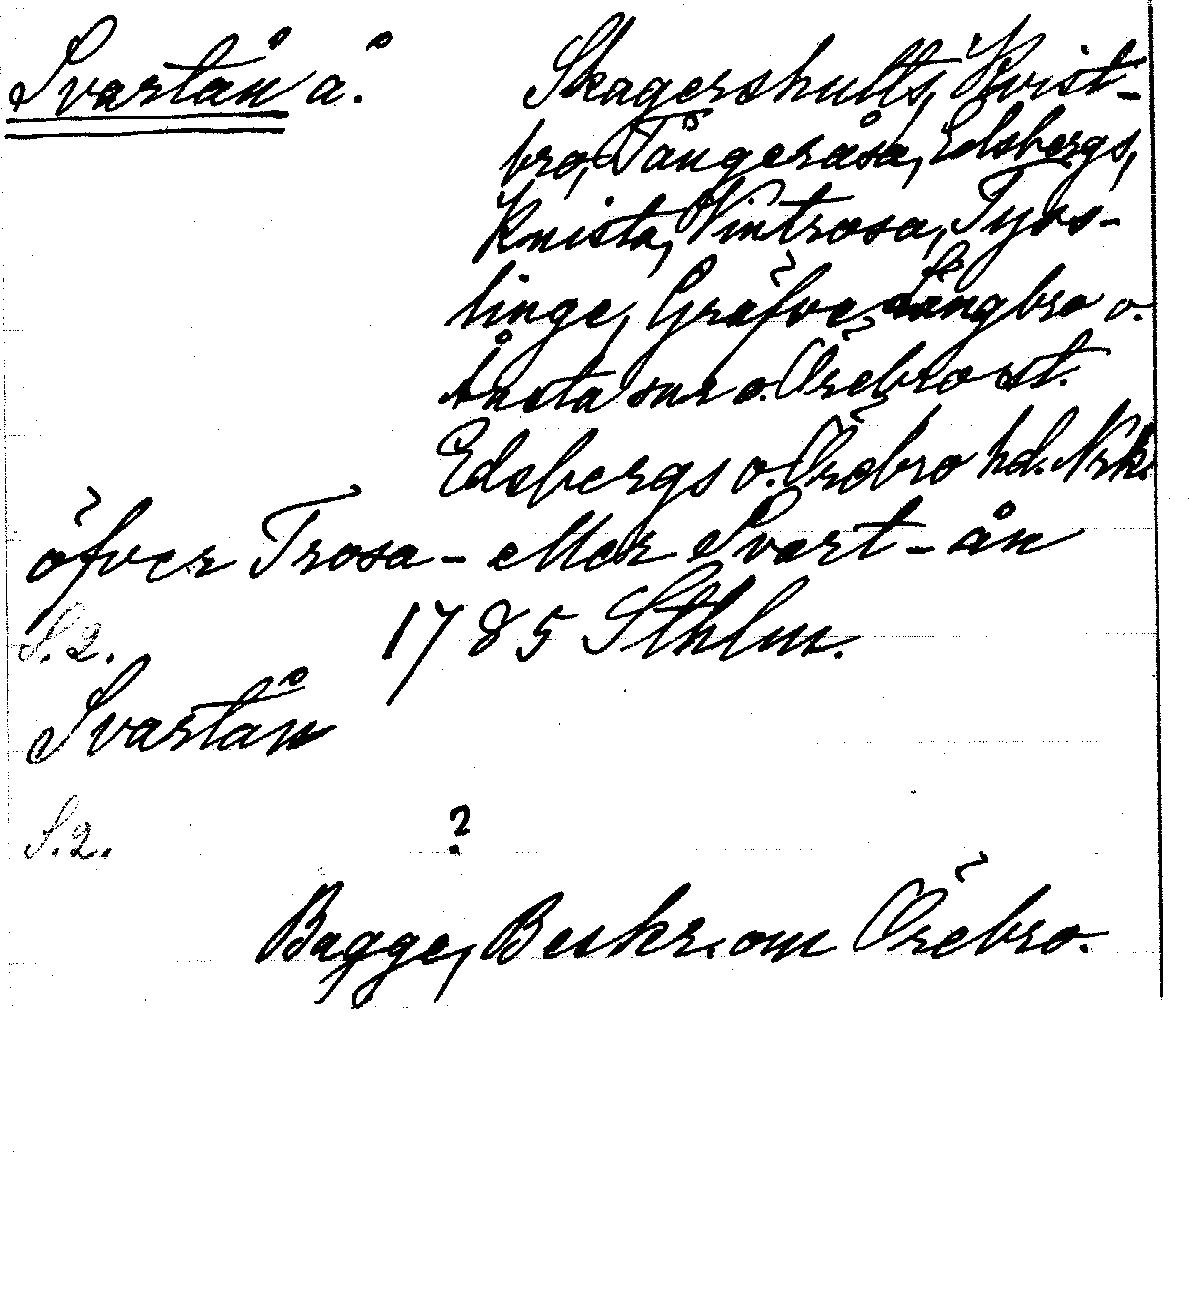 Svartån å. Skagershults, Kvist-
bro, Tångeråsa, Edsbergs,
Knista, Vintrosa, Tyss-
linge, Gräfve, Långbro o.
Ånsta snr o. Örebro st.
Edsbergs o. Örebro hd. Nrk.
öfver Trosa- eller Svart-ån
S.2. 1785 Sthlm.
Svartån
S.2. ?
Bagge, Beskr. om Örebro.